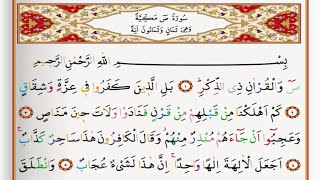 سُورَةُ صٓ مَكِّيَّةٌ
وَهِيَ ثَمَانٍ وَثَمَانُونَ آيَةً
بِسْمِ اللّٰهِ الرَّحْمٰنِ الرَّحِيمِ
صٓ وَالْقُرْاٰنِ ذِي الذِّكْرِ ۝١ بَلِ الَّذِينَ كَفَرُوا فِي عِزَّةٍ وَشِقَاقٍ ۝٢
كَمْ اَهْلَكْنَا مِنْ قَبْلِهِمْ مِنْ قَرْنٍ فَنَادَوْا وَلَاتَ حِينَ مَنَاصٍ ۝٣
وَعَجِبُٓوا اَنْ جَٓاءَهُمْ مُنْذِرٌ مِنْهُمْ وَقَالَ الْكَافِرُونَ هٰذَا سَاحِرٌ كَذَّابٌ ۝٤
اَجَعَلَ الْاٰلِهَةَ اِلٰهًا وَاحِدًا اِنَّ هٰذَا لَشَيْءٌ عُجَابٌ ۝٥ وَانْطَلَقَ